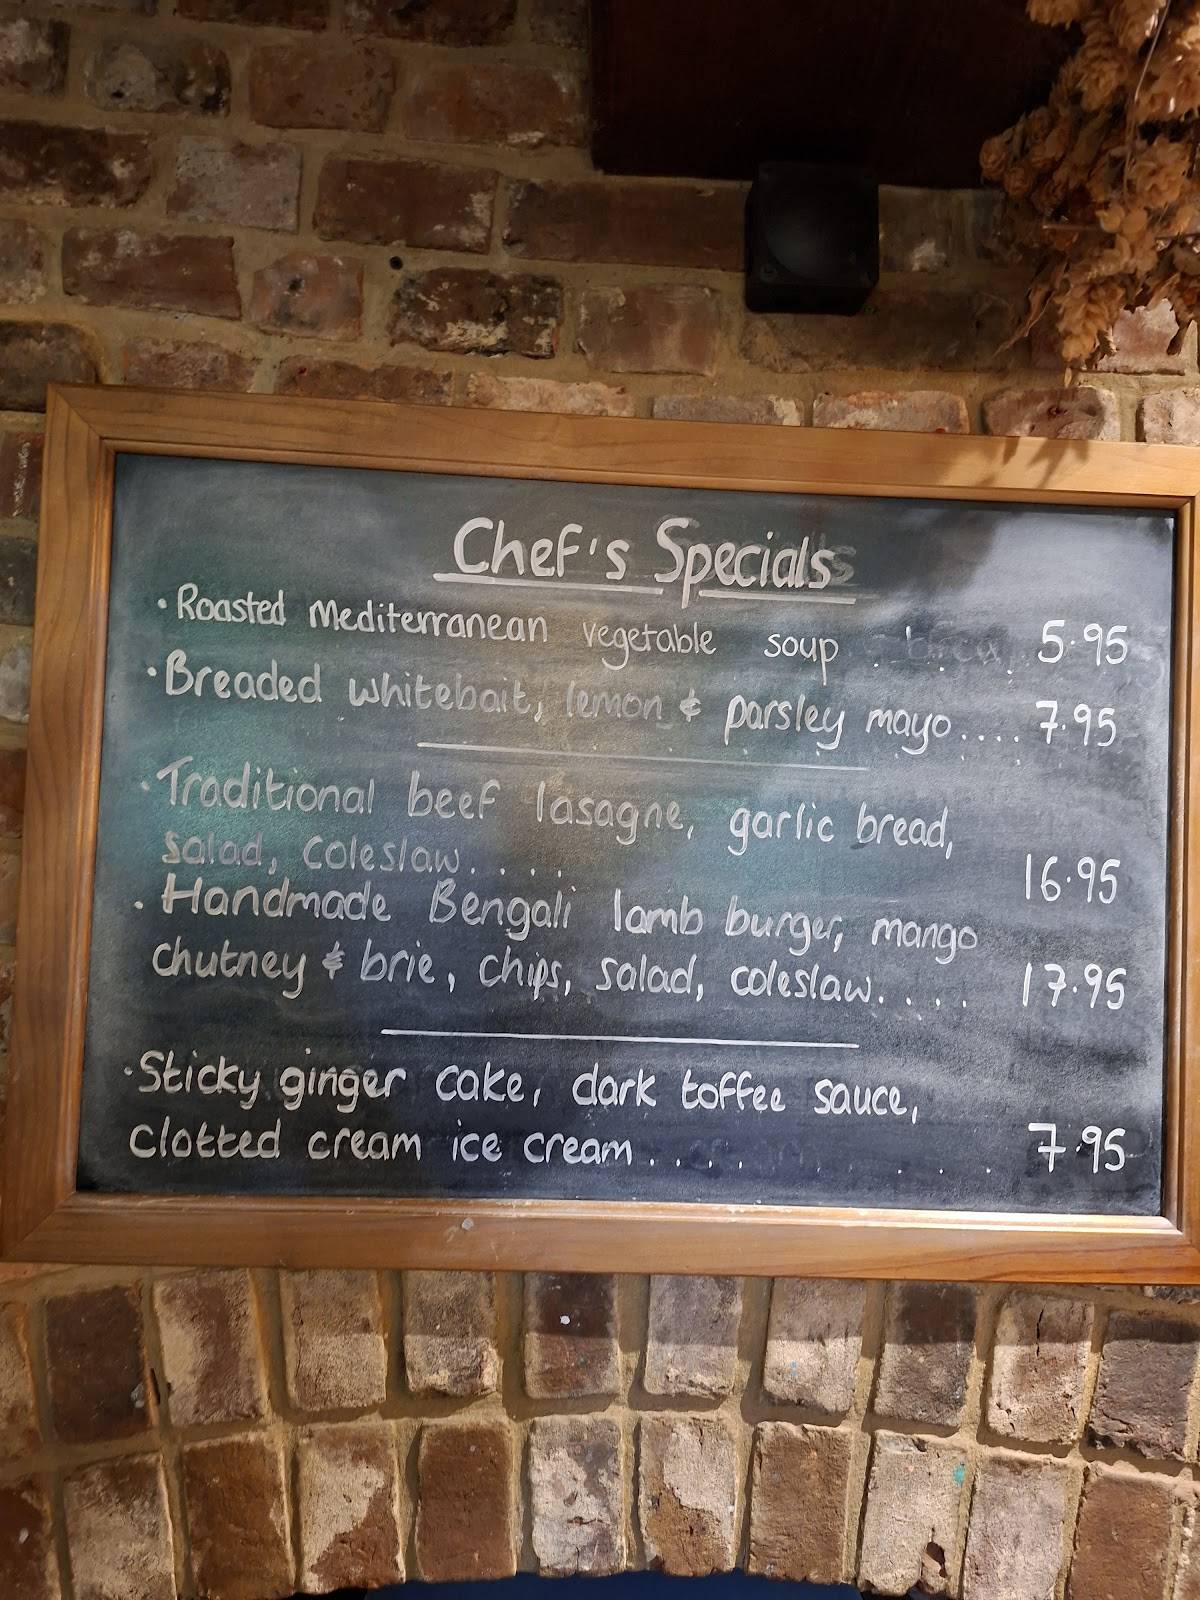 Chef's Specials
· Roasted Mediterranean vegetable soup . . . . 5.95
· Breaded whitebait, lemon & parsley mayo.... 7.95
· Traditional beef lasagne, garlic bread,
salad, coleslaw. . . . . 16.95
· Handmade Bengali lamb burger, mango
chutney & brie, chips, salad, coleslaw. . . . 17.95
· Sticky ginger cake, dark toffee sauce,
clotted cream ice cream . . . . . . . . 7.95